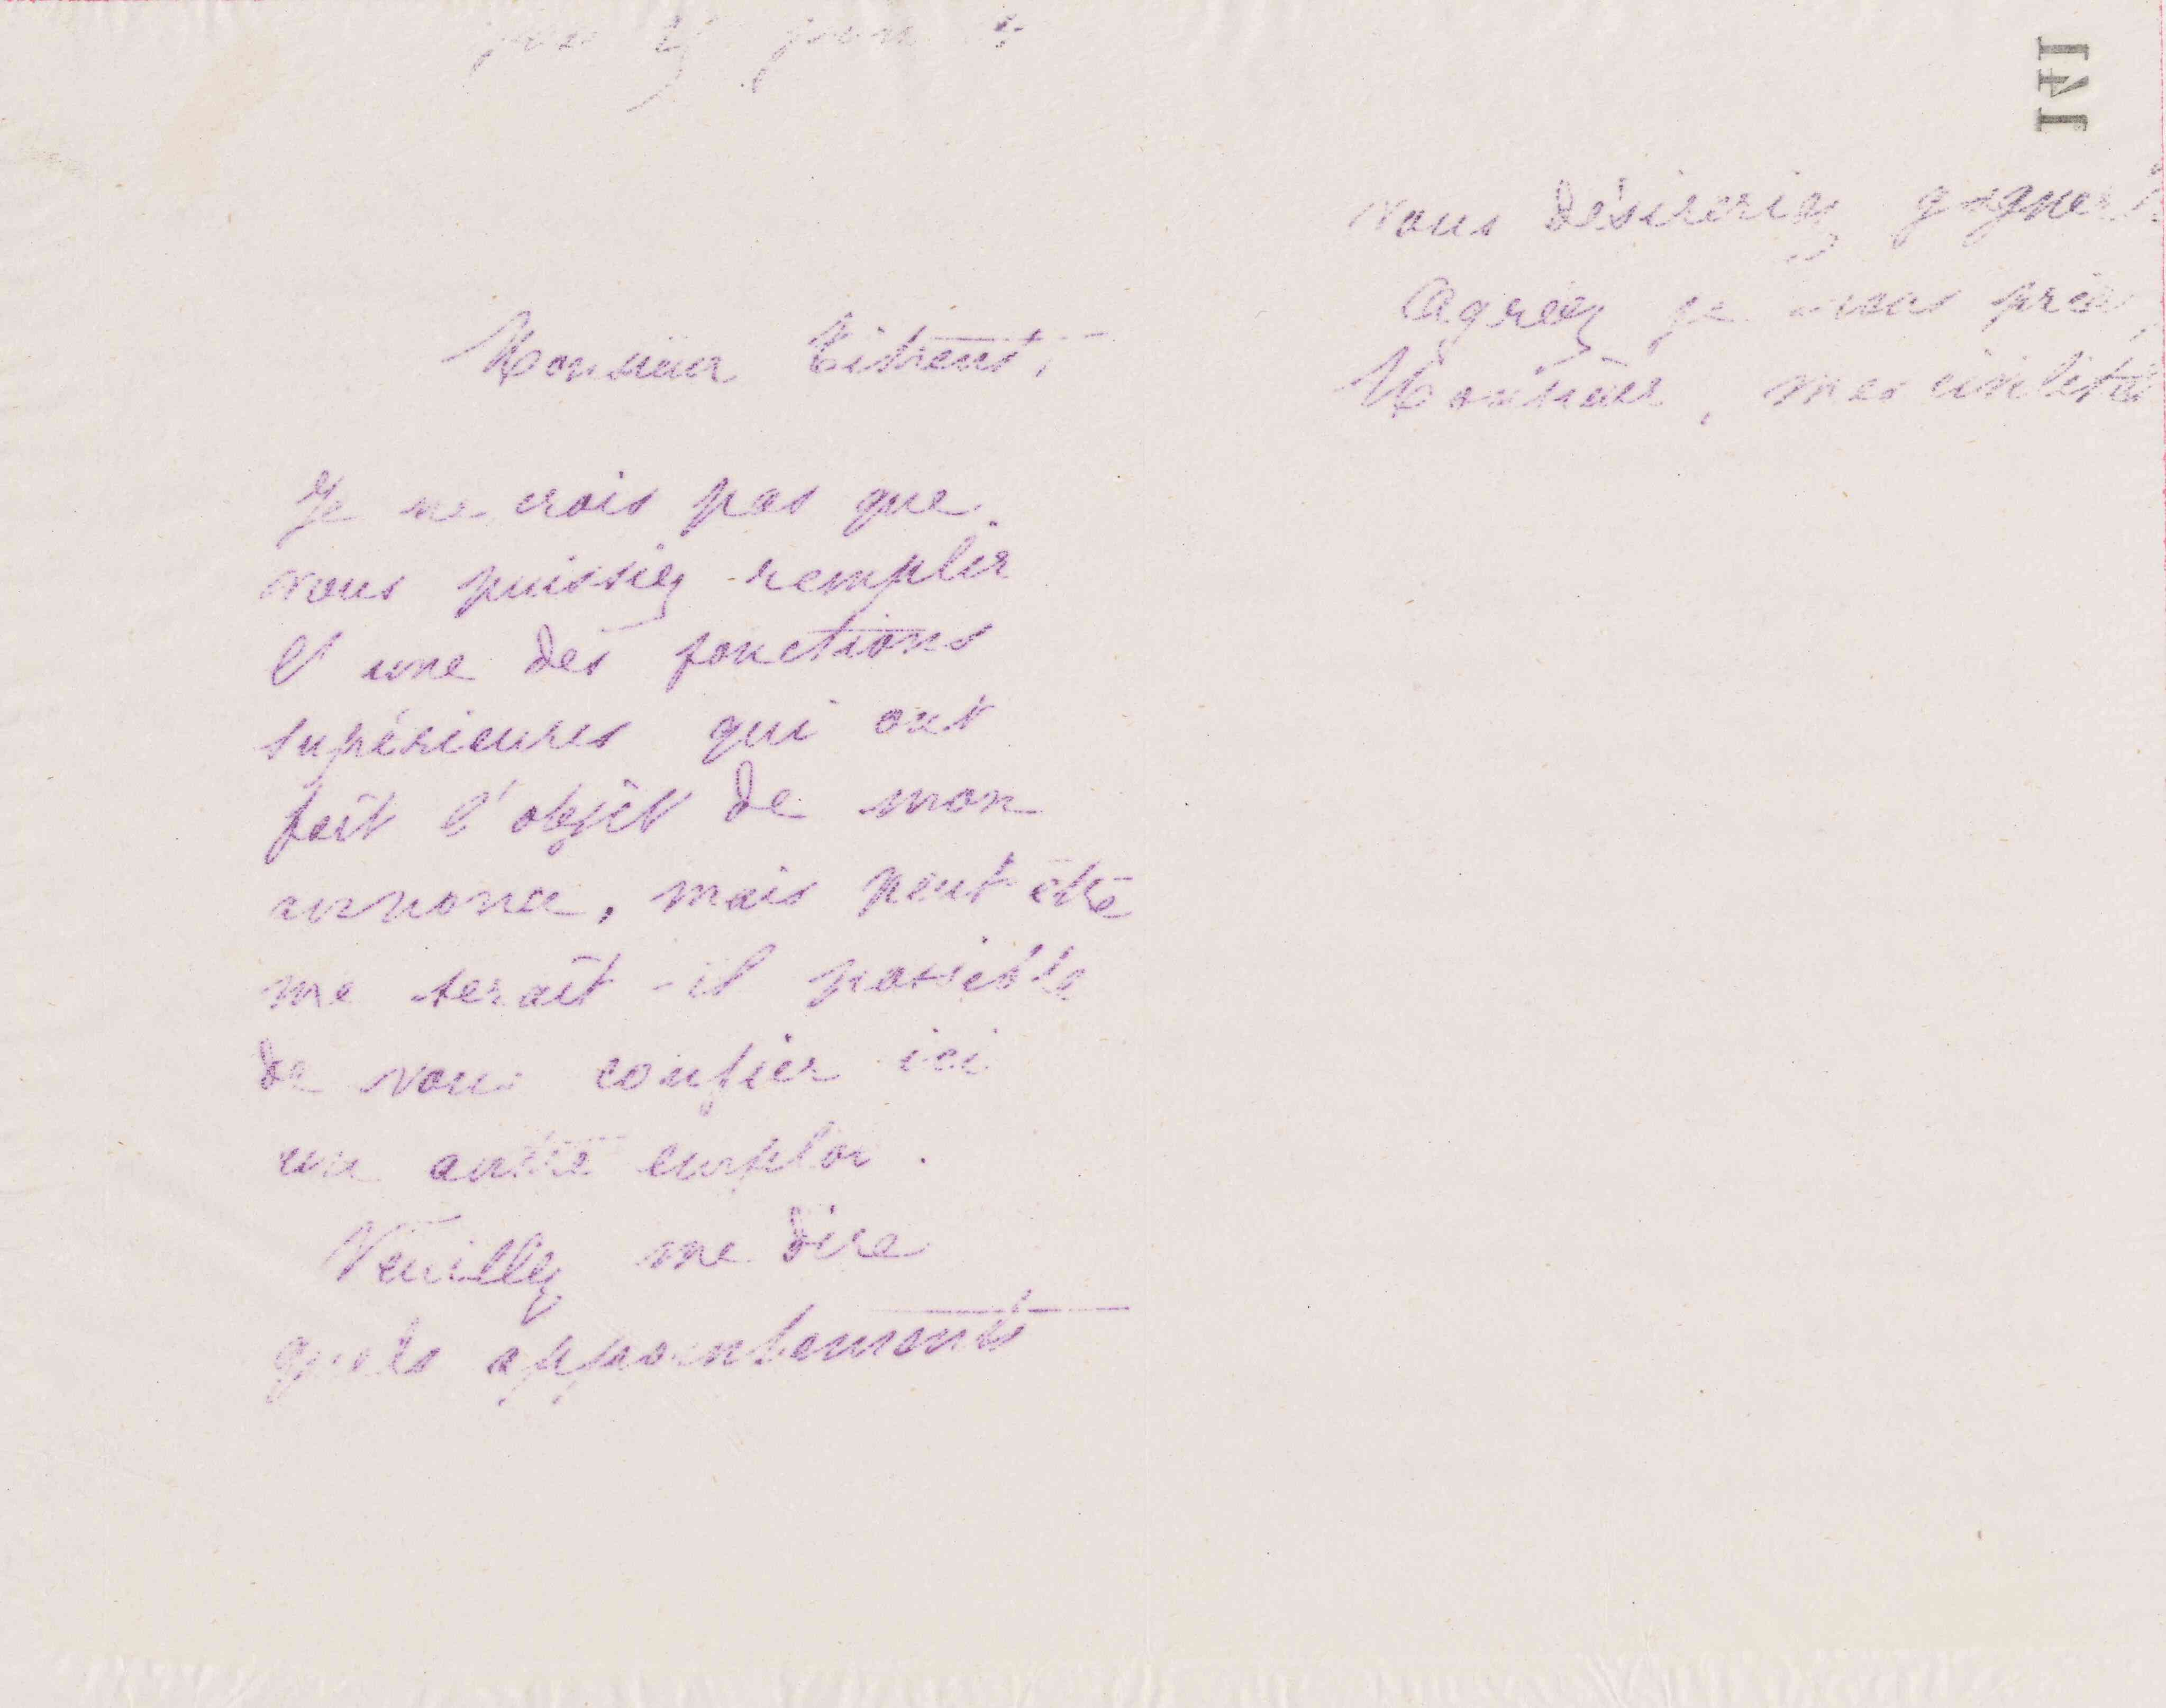 Monsieur
Je ne crois pas que
vous puissiez remplir
l'une des fonctions
supérieures qui ont
fait l'objet de mon
annonce, mais peut être
me serait-il possible
de vous confier ici
un autre emploi.
Veuillez me dire
quels appointements
vous désireriez gagner
Agréez je vous prie,
Monsieur, mes civilités